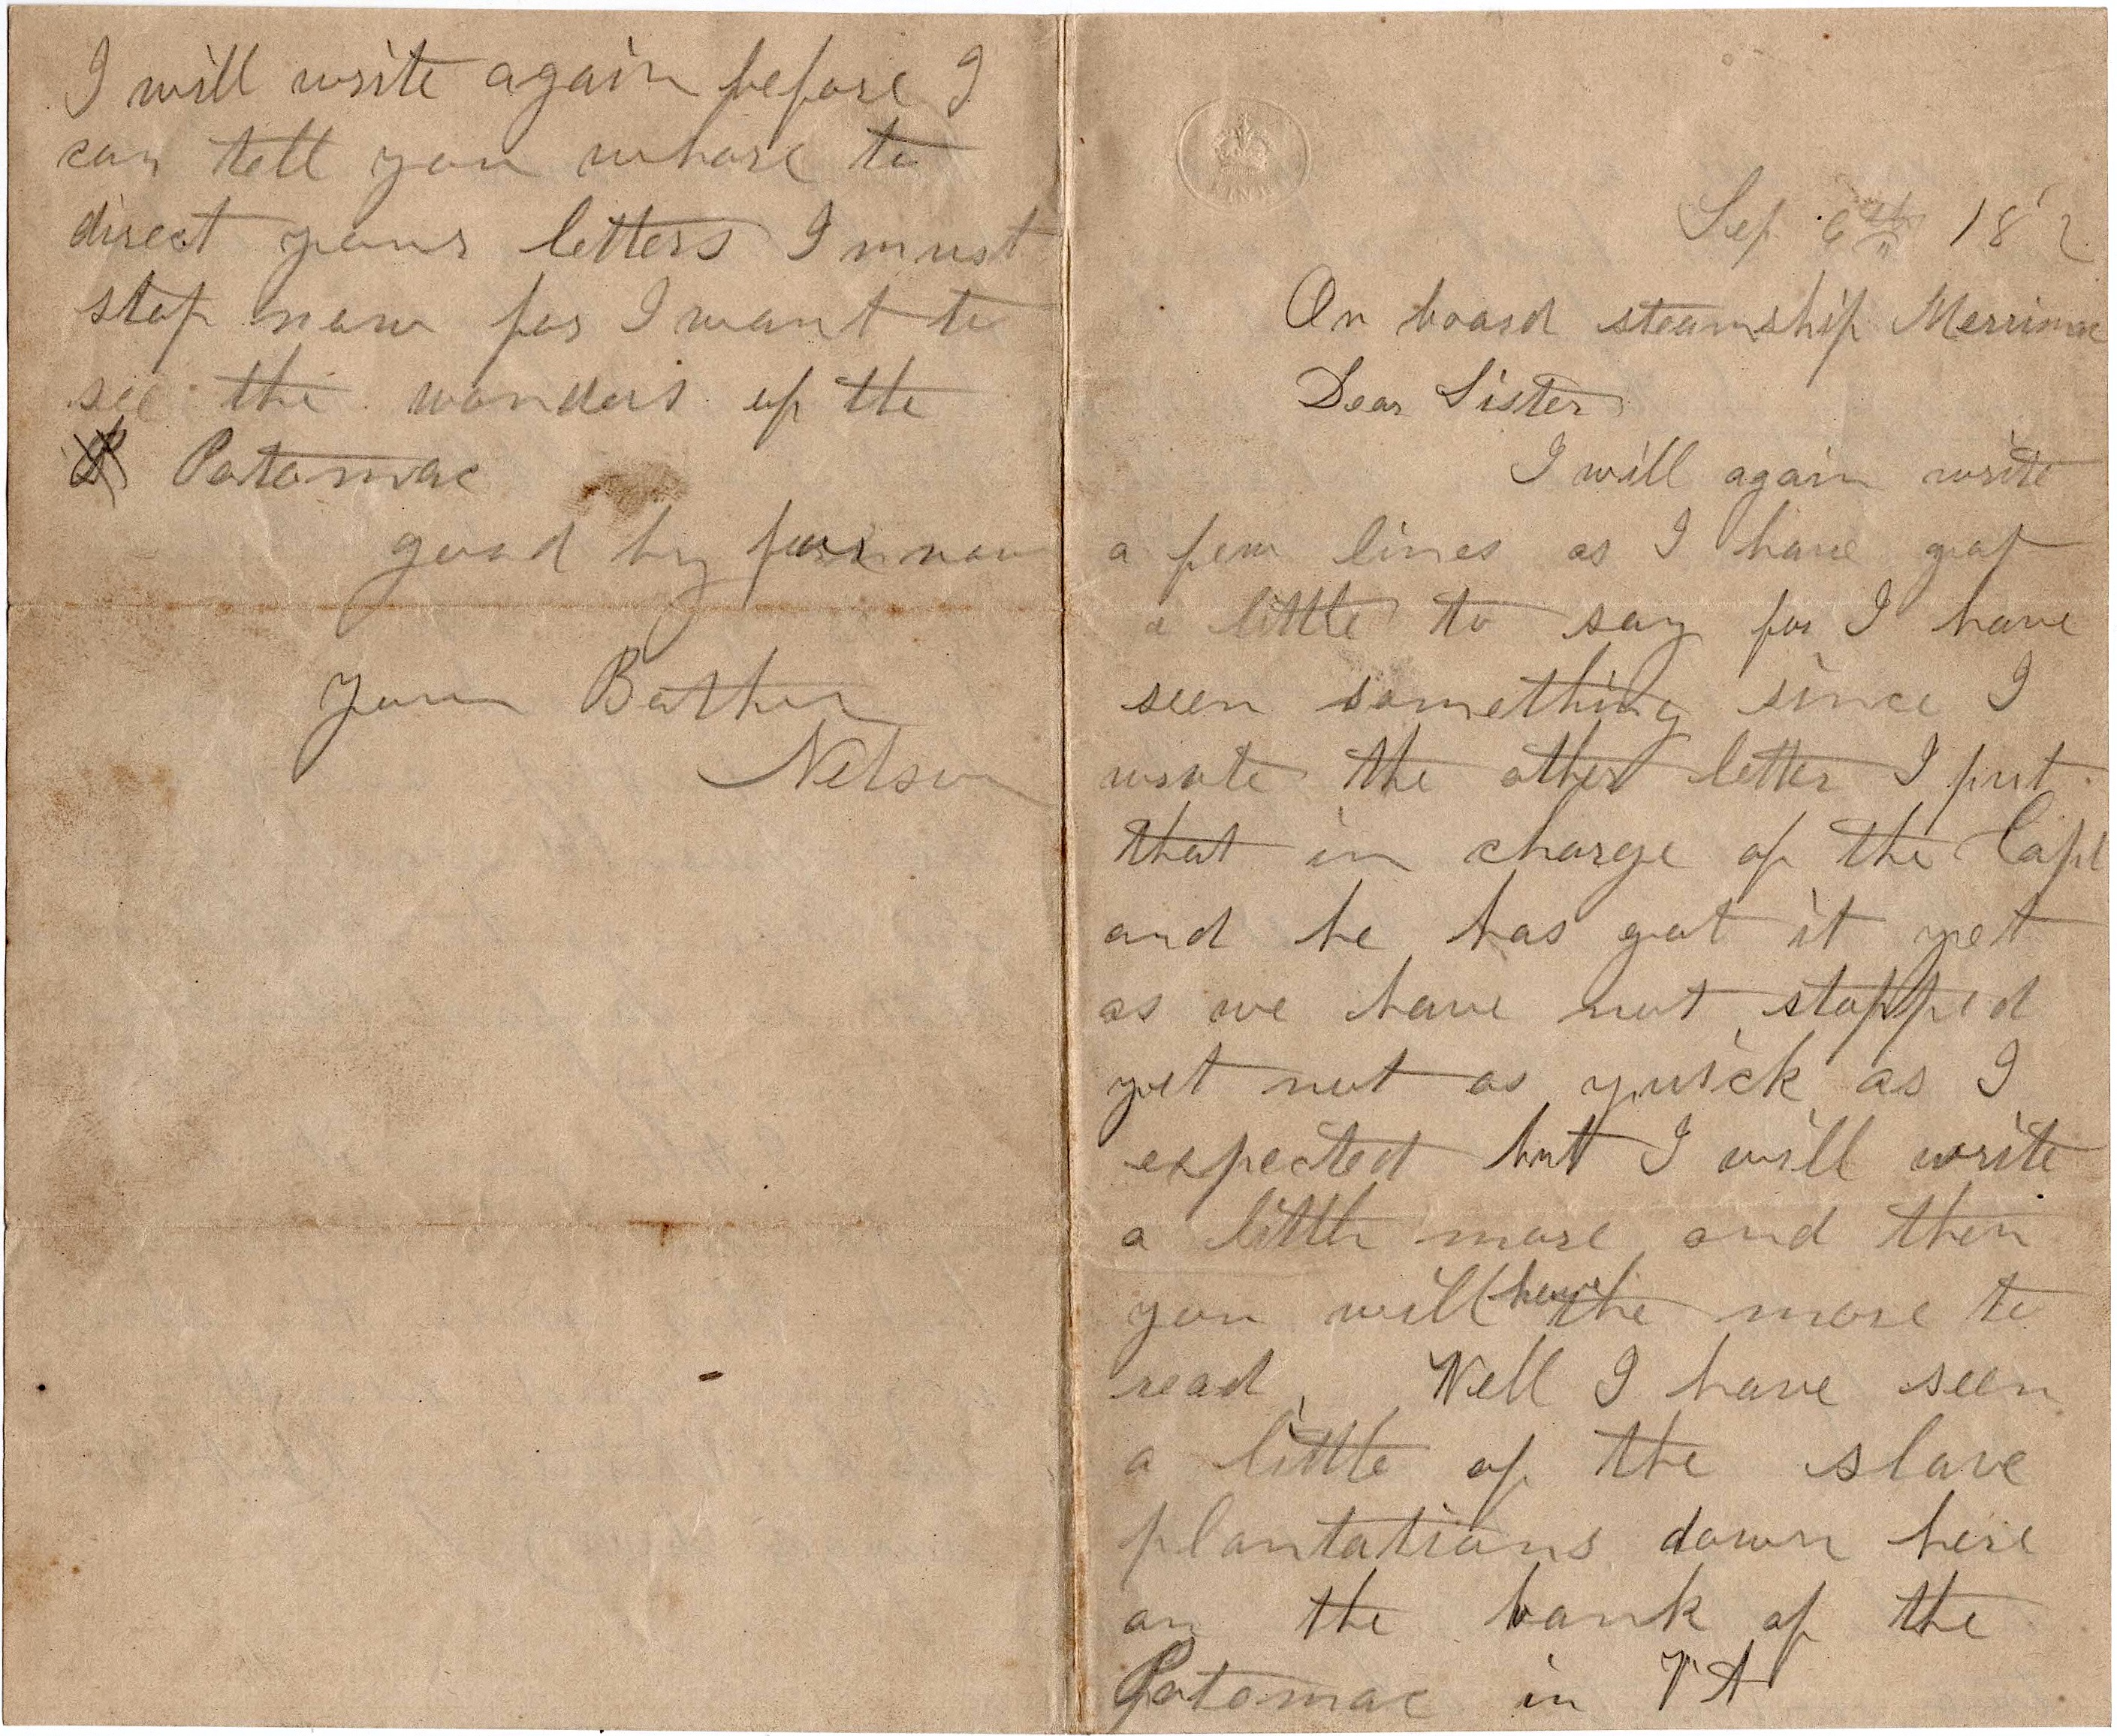 Sep 6th 18 2
On board steamship Merrimac
Dear Sister
I will again write
a few lines as I have got
a little to say for I have
seen something since I
wrote the other letter I put
that in charge of the Capt
and he has got it yet
as we have not stopped
yet not as quick as I
expected but I will write
a little more and then
you will have the more to
read Well I have seen
a little of the slave
plantations down here
on the bank of the
Potomac in VA
I will write again before I
can tell you whare to
direct yours letters I must
stop now for I want to
see the wonders of the
P Potomac
good by for now
your Bother
Nelson